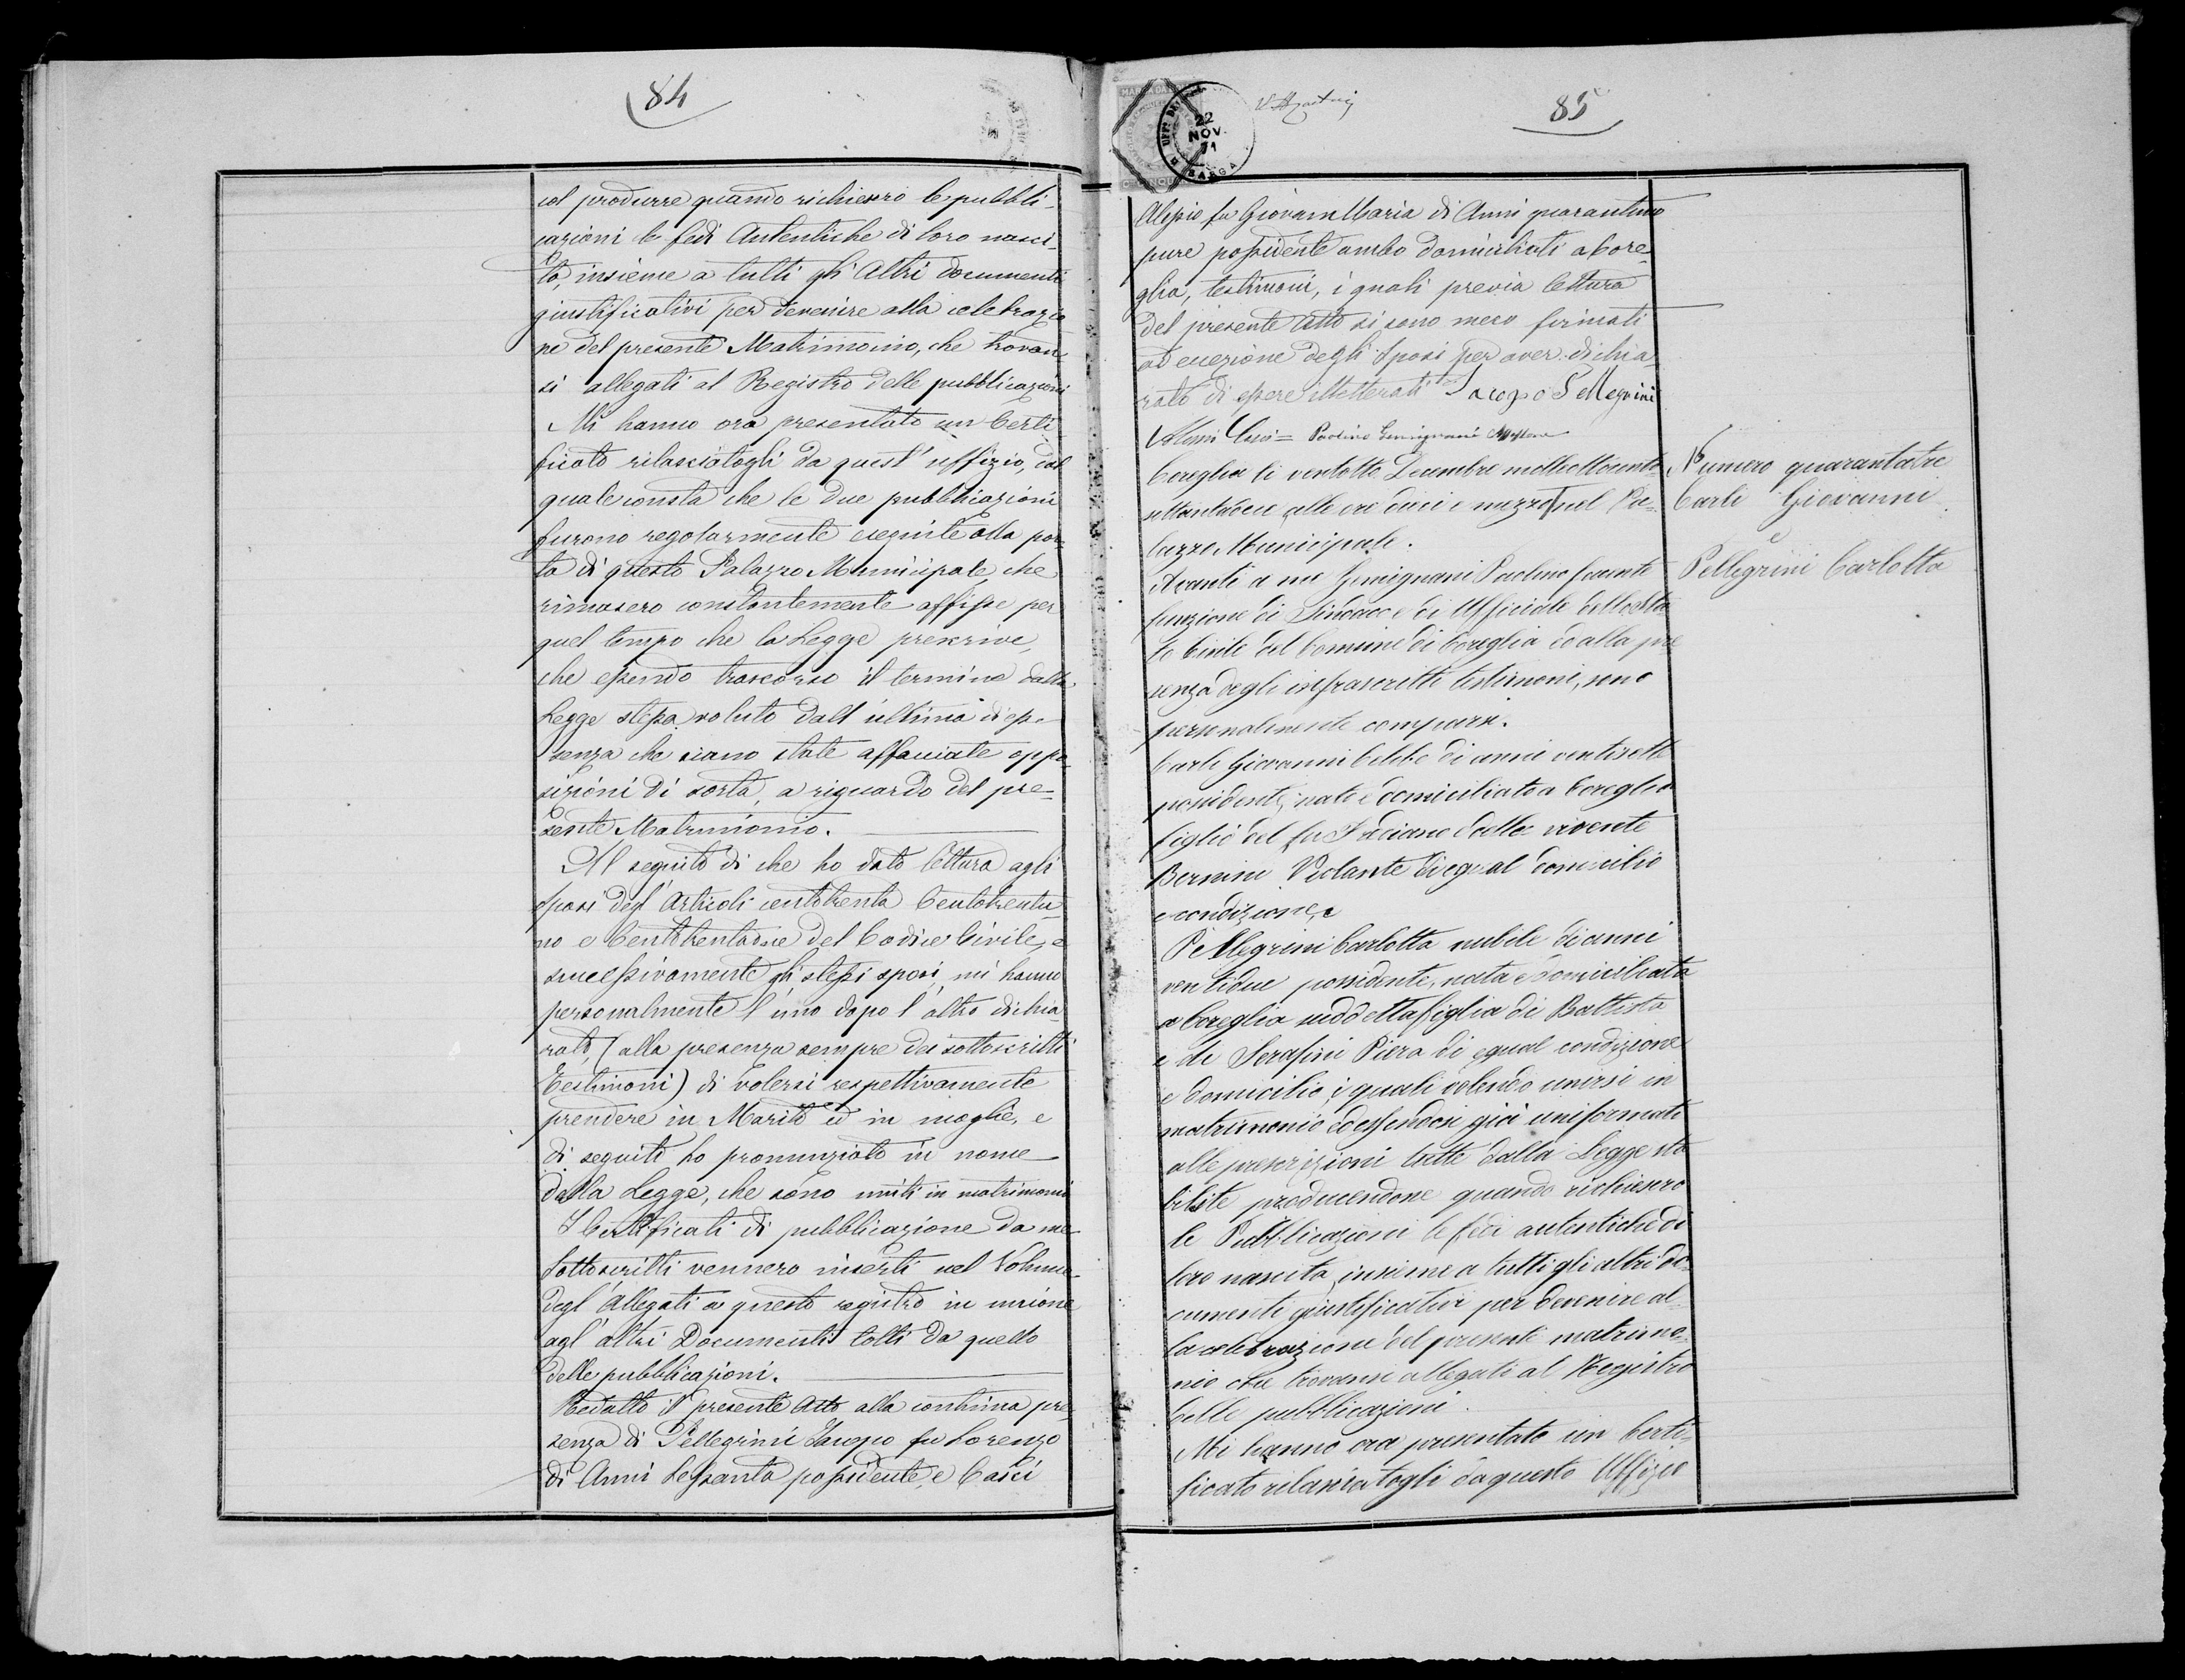 84
col produrre quando richiesero le pubbli-
cazioni le fedi Autentiche di loro nasci-
ta, insieme a tutti gli Altri documenti
giustificativi per devenire alla celebrazio
ne del presente Matrimonio, che trovan
si allegati al Registro delle pubblicazioni
Mi hanno ora presentato un Certi
ficato rilasciatogli da quest'uffizio, dal
quale consta che le due pubblicazioni
furono regolarmente eseguite alla por-
ta di questo Palazzo Municipale, che
rimasero constantemente affisse per
quel tempo che la Legge prescrive,
che essendo trascorso il termine dalla
Legge stessa voluto dall'ultima di esse
senza che siano state affacciate oppo
sizioni di sorta, a riguardo del pre-
sente Matrimonio.
Al seguito di che ho dato lettura agli
Sposi degl'Articoli centotrenta Centotrentu-
no e Centotrentadue del Codice Civile, e
successivamente gli stessi sposi, mi hanno
personalmente l'uno dopo l'altro dichia-
rato, (alla presenza sempre dei sottoscritti
Testimoni) di volersi respettivamente
prendere in Marito ed in moglie, e
di seguito ho pronunziato in nome
della Legge, che sono uniti in matrimonio
I Certificati di pubblicazione da me
Sottoscritti vennero inserti nel Volume
degl'Allegati a questo registro in unione
agl'altri Documenti tolti da quello
delle pubblicazioni.
Redatto il presente Atto alla continua pre
senza di Pellegrini Jacopo fu Lorenzo
di Anni Sessanta possidente, e Casci
22
NOV.
71
BARGA
85
Alessio fu GiovanMaria di Anni quarantuno
pure possidente ambo domiciliati a Core-
glia, testimoni, i quali previa lettura
del presente Atto si sono meco firmati
ad eccezione degli Sposi per aver dichia
rato di essere illetterati Jacopo Pellegrini
Paolino Gemignani
Coreglia li ventotto Decembre milleottocento
settantadue alle ore dieci e mezzo nel Pa-
lazzo Municipale.
Avanti a me Gemignani Paolino facente
funzione di Sindaco e di Ufficiale dello Sta
to Civile del Comune di Coreglia ed alla pre
senza degli infrascritti testimoni, sono
personalmente comparsi.
Carli Giovanni Celibe di anni ventisette
possidente, nato e domiciliato a Coreglia
figlio del fu Feliciano e della vivente
Bernini Violante di egual domicilio
e condizione, e
Pellegrini Carlotta nubile di anni
ventidue possidente, nata e domiciliata
a Coreglia suddetta figlia di Battista
e di Serafini Piera di egual condizione
e domicilio, i quali volendo unirsi in
matrimonio ed essendosi già uniformati
alle prescrizioni tutte dalla Legge sta
bilite producendone quando richiesero
le Pubblicazioni le fedi autentiche di
loro nascita, insieme a tutti gli altri do-
cumenti giustificativi per devenire al-
la celebrazione del presente matrimo-
nio che trovansi allegati al Registro
delle pubblicazioni.
Mi hanno ora presentato un Certi-
ficato rilasciatogli da questo Uffizio
Numero quarantatre
Carli Giovanni
e
Pellegrini Carlotta